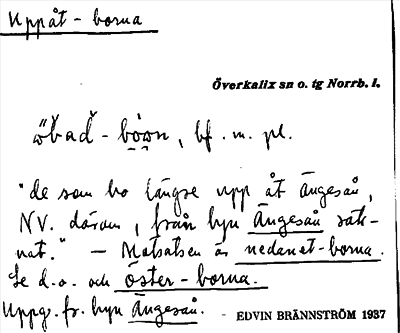 Uppåt-borna
Överkalix sn o. tg Norrb. l.
bf. m. pl.
"de som bo längre upp åt Ängesån,
NV. därom, från byn Ängesån räk-
nat." — Motsatsen är nedanet-borna.
Se d.o. och öster-borna.
Uppg. fr. byn Ängesån. - EDVIN BRÄNNSTRÖM 1937